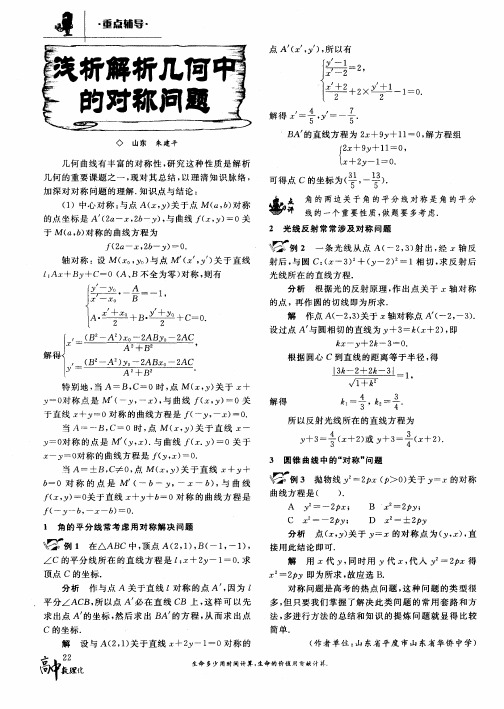 ·重点辅导·
浅析解析几何中
的对称问题
◇ 山东 朱建平
几何曲线有丰富的对称性,研究这种性质是解析
几何的重要课题之一,现对其总结,以理清知识脉络,
加深对对称问题的理解.知识点与结论:
(1) 中心对称:与点 A(x,y)关于点 M(a,b)对称
的点坐标是 A′(2a-x,2b-y),与曲线 f(x,y)=0 关
于 M(a,b)对称的曲线方程为
f(2a-x,2b-y)=0.
轴对称:设 M(x₀,y₀)与点 M′(x′,y′)关于直线
l:Ax+By+C=0 (A、B 不全为零)对称,则有
{(y′-y₀)/(x′-x₀)·(-A/B)=-1,
A·(x′+x₀)/2+B·(y′+y₀)/2+C=0.
解得{x′=((B²-A²)x₀-2ABy₀-2AC)/(A²+B²),
y′=((B²-A²)y₀-2ABx₀-2AC)/(A²+B²)
特别地,当 A=B,C=0 时,点 M(x,y)关于 x+
y=0对称点是 M′(-y,-x),与曲线 f(x,y)=0 关
于直线 x+y=0 对称的曲线是 f(-y,-x)=0.
当 A=-B,C=0 时,点 M(x,y)关于直线 x-
y=0对称的点是 M′(y,x).与曲线 f(x,y)=0 关于
x-y=0对称的曲线方程是 f(y,x)=0.
当 A=±B,C≠0,点 M(x,y)关于直线 x+y+
b=0 对称的点是 M′(-b-y,-x-b),与曲线
f(x,y)=0关于直线 x+y+b=0 对称的曲线方程是
f(-y-b,-x-b)=0.
1 角的平分线常考虑用对称解决问题
例 1 在△ABC 中,顶点 A(2,1),B(-1,-1),
∠C 的平分线所在的直线方程是 l:x+2y-1=0.求
顶点 C 的坐标.
分析 作与点 A 关于直线 l 对称的点 A′,因为 l
平分∠ACB,所以点 A′必在直线 CB 上,这样可以先
求出点 A′的坐标,然后求出 BA′的方程,从而求出点
C 的坐标.
解 设与 A(2,1)关于直线 x+2y-1=0 对称的
点 A′(x′,y′),所以有
{(y′-1)/(x′-2)=2,
(x′+2)/2+2×(y′+1)/2-1=0.
解得 x′=4/5,y′=-7/5.
BA′的直线方程为 2x+9y+11=0,解方程组
{2x+9y+11=0,
x+2y-1=0.
可得点 C 的坐标为(31/5,-13/5).
点评 角的两边关于角的平分线对称是角的平分
线的一个重要性质,做题要多考虑.
2 光线反射常常涉及对称问题
例 2 一条光线从点 A(-2,3)射出,经 x 轴反
射后,与圆 C:(x-3)²+(y-2)²=1 相切,求反射后
光线所在的直线方程.
分析 根据光的反射原理,作出点关于 x 轴对称
的点,再作圆的切线即为所求.
解 作点 A(-2,3)关于 x 轴对称点 A′(-2,-3).
设过点 A′与圆相切的直线为 y+3=k(x+2),即
kx-y+2k-3=0.
根据圆心 C 到直线的距离等于半径,得
|3k-2+2k-3|/√(1+k²)=1,
解得 k₁=4/3,k₂=3/4.
所以反射光线所在的直线方程为
y+3=4/3(x+2)或 y+3=3/4(x+2).
3 圆锥曲线中的“对称”问题
例 3 抛物线 y²=2px (p>0)关于 y=x 的对称
曲线方程是( ).
A y²=-2px; B x²=2py;
C x²=-2py; D x²=±2py
分析 点(x,y)关于 y=x 的对称点为(y,x),直
接用此结论即可.
解 用 x 代 y,同时用 y 代 x,代入 y²=2px 得
x²=2py 即为所求,故应选 B.
对称问题是高考的热点问题,这种问题的类型很
多,但只要我们掌握了解决此类问题的常用套路和方
法,多进行方法的总结和知识的提炼问题就显得比较
简单.
(作者单位:山东省平度市山东省华侨中学)
22
高中数理化
生命多少用时间计算,生命的价值用贡献计算.